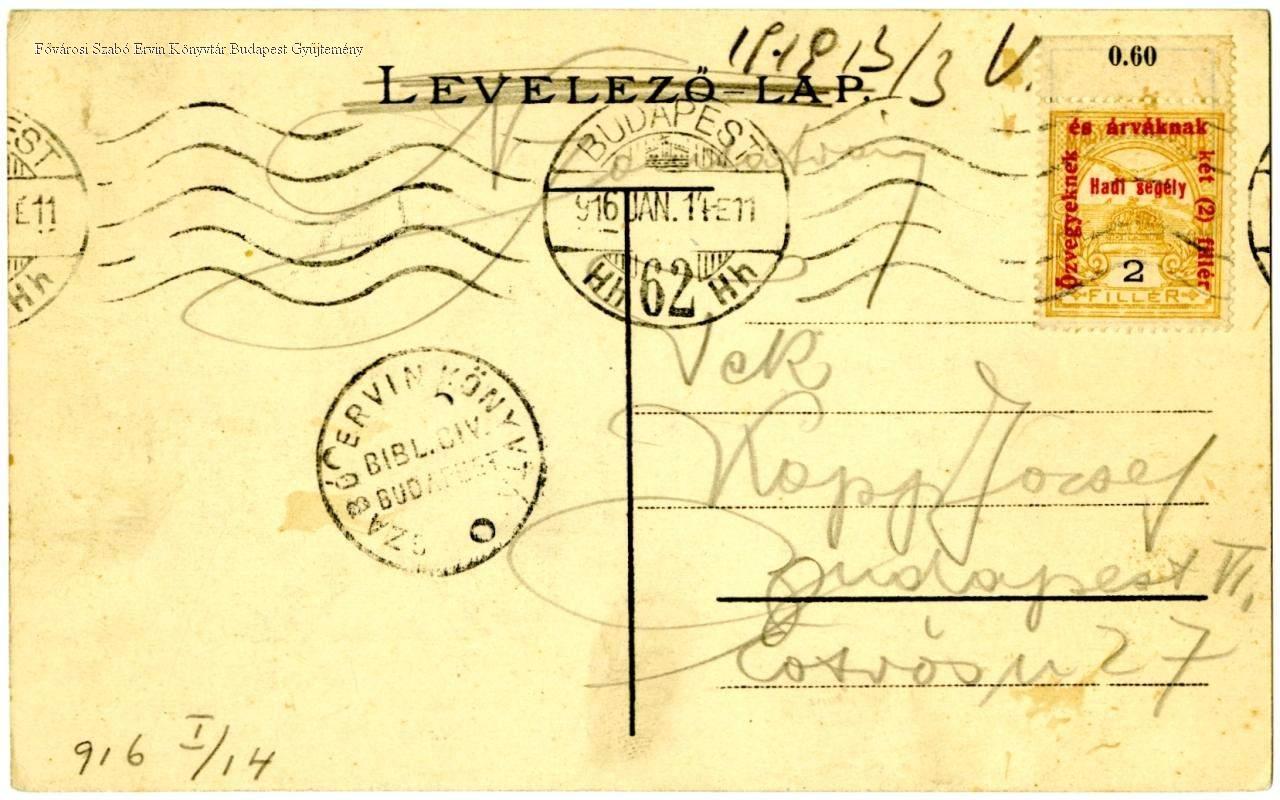 Fővárosi Szabó Ervin Könyvtár Budapest Gyűjtemény
LEVELEZŐ-LAP.
0.60
és árváknak
Özvegyeknek
két (2) fillér
Hadi segély
2
FILLÉR
BUDAPEST
916 JAN. 14 E11
Hh 62 Hh
EST
E11
Hh
Nyomtatvány
SZABÓ ERVIN KÖNYVT
BIBL. CIV.
BUDAPEST
Kapp József
Budapest VI.
Eötvös u 27
916 I/14